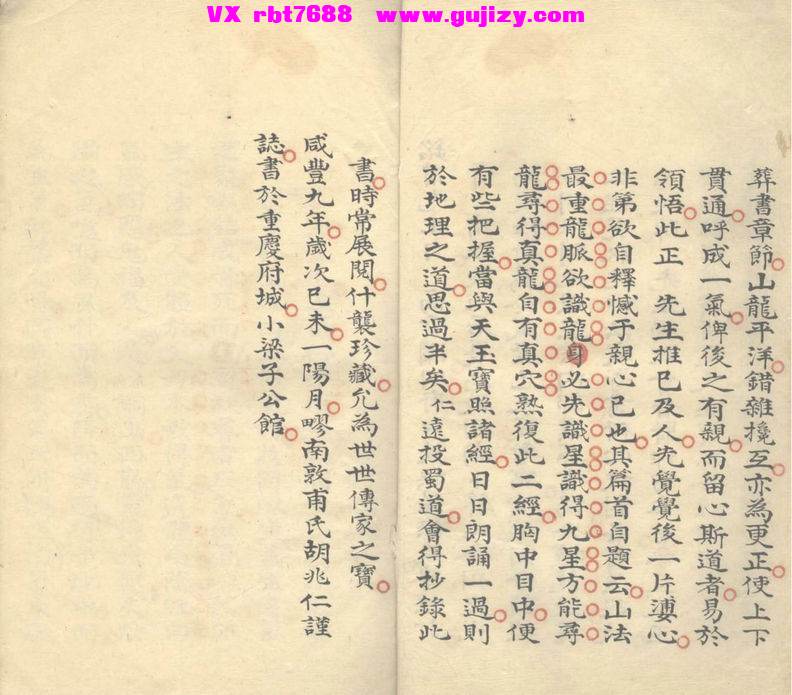 VX rbt7688 www.gujizy.com
葬書章節山龍平洋錯雜攙互亦為更正使上下
貫通呼成一氣俾後之有親而留心斯道者易於
領悟此正 先生推已及人先覺覺後一片婆心
非第欲自釋憾于親心已也其篇首自題云山法
最重龍脈欲識龍身必先識星識得九星方能尋
龍尋得真龍自有真穴熟復此二經胸中目中便
有些把握當與天玉寶照諸經日日朗誦一過則
於地理之道思過半矣仁遠投蜀道會得抄錄此
書時常展閱什襲珍藏允為世世傳家之寶
咸豐九年歲次已未一陽月畷南敦甫氏胡兆仁謹
誌書於重慶府城小梁子公館